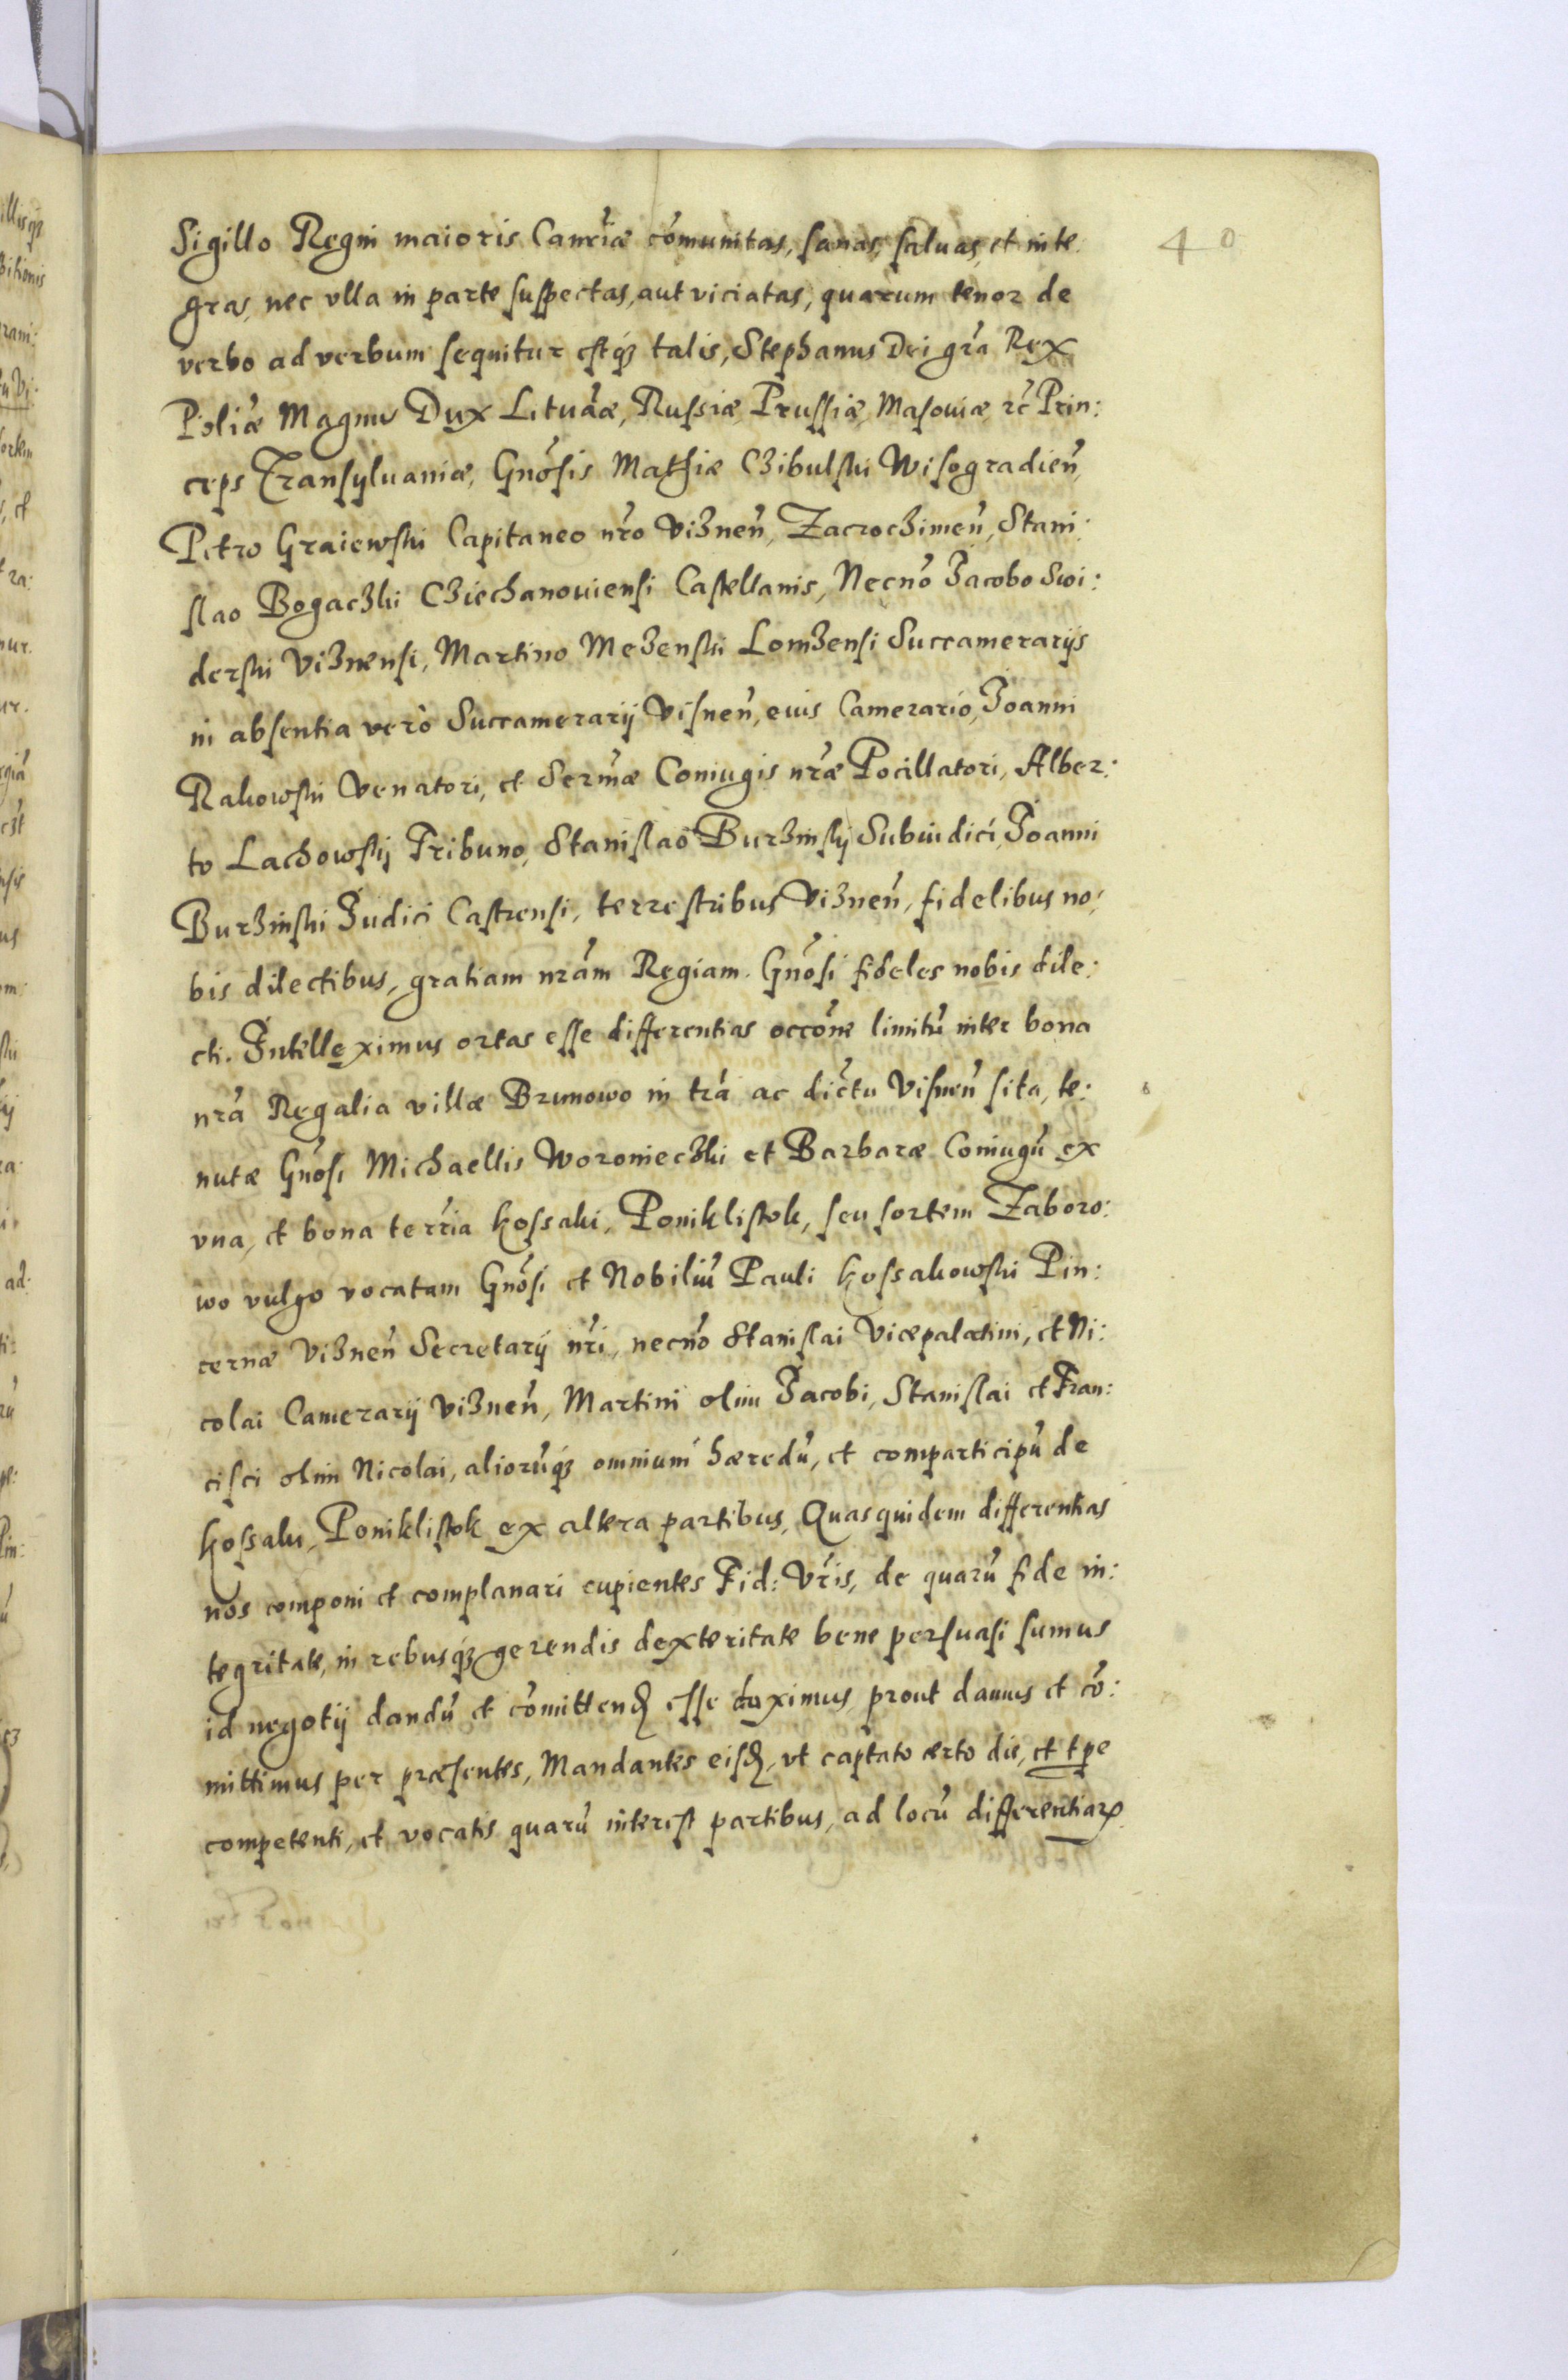 40
Sigillo Regni maioris Canc̃riæ cõmunitas, sanas, saluas, et inte:
gras, nec vlla in parte suspectas, aut viciatas, quarum tenor de
verbo ad verbum sequitur estq́ʒ talis, Stephanus Dei gr̃a Rex
Poliæ̃ Magnus Dux Lituãæ, Russiæ, Prussiæ, Masouiæ, ꝛc̃ Prin:
ceps Transyluaniæ, Gnõsis Mathiæ Czibulski Wisogradieñ,
Petro Graiewski Capitaneo nr̃o Vizneñ, Zacrochimeñ, Stani:
slao Bogaczki Cziechanouiensi Castellanis, Necnõ Jacobo Swi:
derski Viznensi, Martino Mezenski Lomzensi Succamerarijs
in absentia verò Succamerarij Visneñ, eius Camerario, Joanni
Rakowski Venatori, et Serm̃æ Coniugis nr̃æ Pocillatori, Alber:
to Lachowskij Tribuno, Stanislao Burzinskij Subiudici, Joanni
Burzinski Judici Castrensi, terrestribus Vizneñ, fidelibus no:
bis dilectibus, gratiam nr̃am Regiam. Gnõsi fideles nobis dile:
cti. Intelleximus ortas esse differentias occõne limitũ inter bona
nr̃a Regalia villæ Brunowo in tr̃a ac dic̃tu Visneñ sita, te:
nutæ Gnõsi Michaellis Woronieczki et Barbaræ Coniugũ ex
vna, et bona terr̃ia Kossaki, Poniklistok, seu sortem Zaboro:
wo vulgo vocatam Gnõsi et Nobiliũ Pauli Kossakowski Pin:
cernæ Vizneñ Secretarij nr̃i, necnõ Stanislai Vicepalatini, et Ni:
colai Camerarij Vizneñ, Martini olim Jacobi, Stanislai et Fran:
cisci olim Nicolai, aliorũq́ʒ omnium hæredũ, et comparticipũ de
Kossaki, Poniklistok ex altera partibus, Quasquidem differentias
nos componi et complanari cupientes Fid: Vr̃is, de quarũ fide in:
tegritate, in rebusq́ʒ gerendis dexteritate bene persuasi sumus
id negotij dandũ et cõmittenꝺ esse duximus prout damus et cõ:
mittimus per præsentes, Mandantes eisꝺ, vt captato certo die, et tp̲e
competenti, et vocatis quarũ interest partibus, ad locũ differentiaꝝ